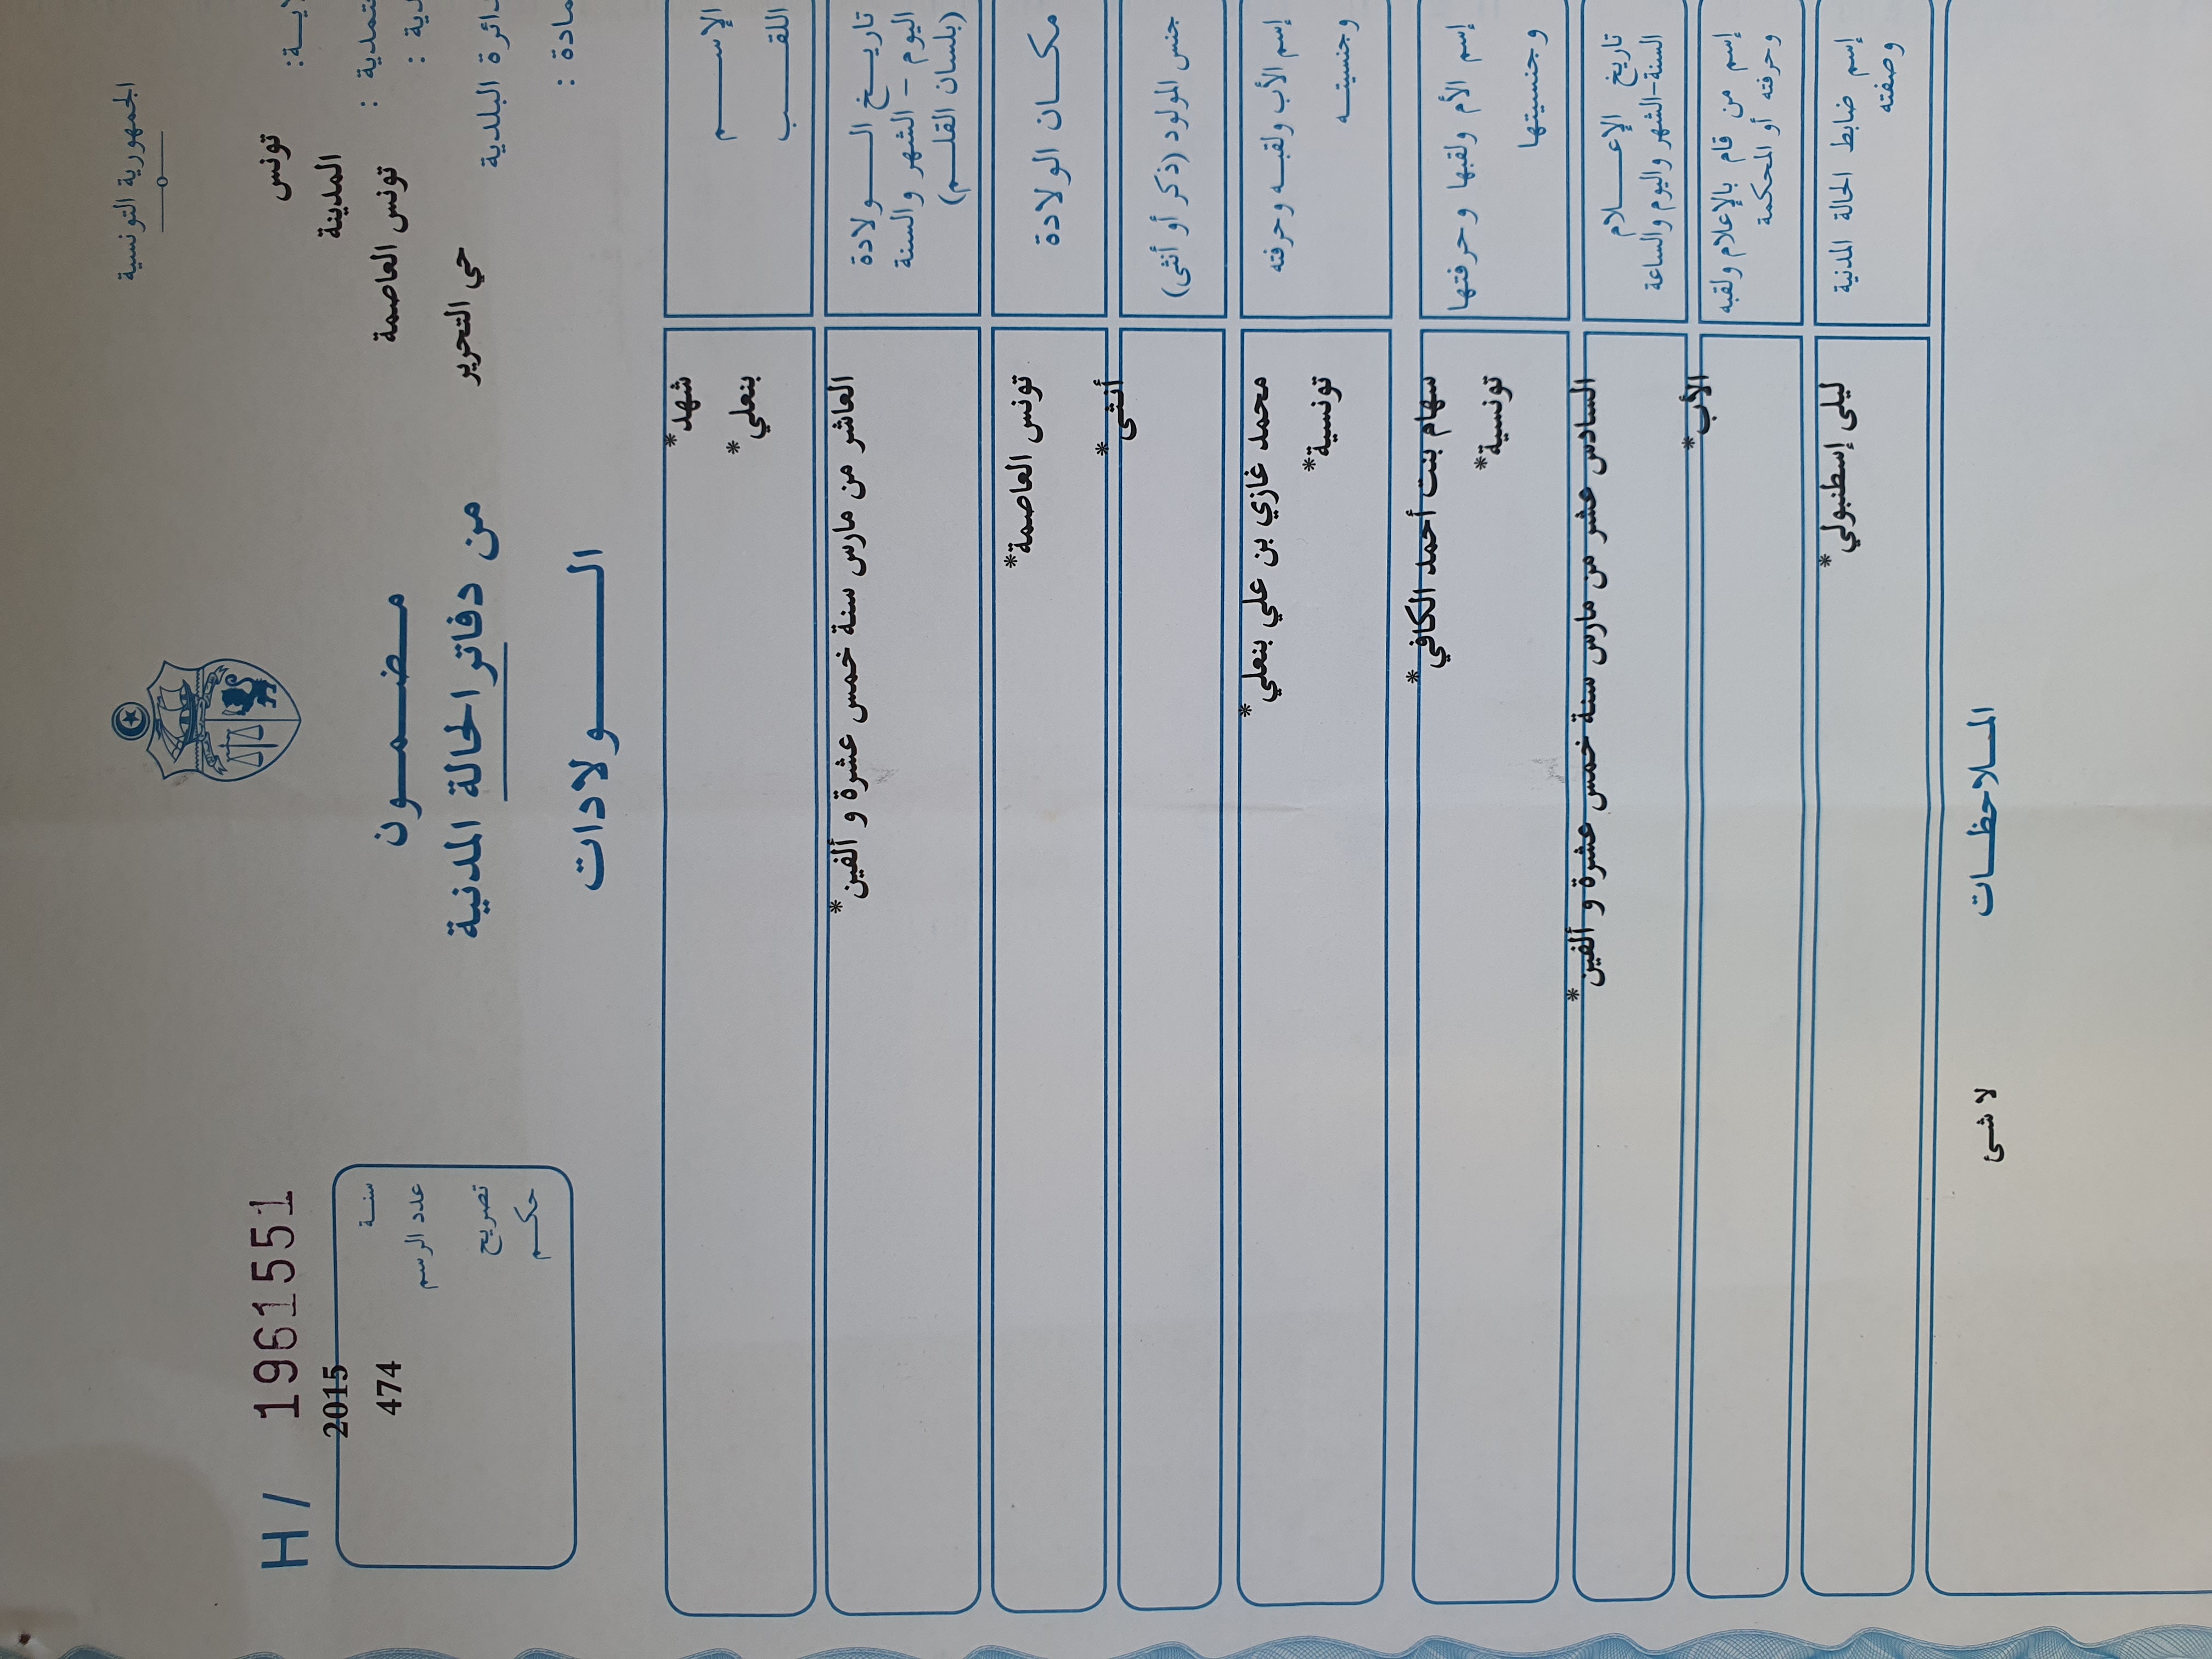 الجمهورية التونسية
تونس
المدينة
تونس العاصمة
حي التحرير
دائرة البلدية
H/ 1961551
سنة 2015
عدد الرسم 474
تصريح
حكم
مضمون
من دفاتر الحالة المدنية
الولادات
الإسم
شهد*
اللقب
بنعلي*
تاريخ الولادة
اليوم - الشهر والسنة
(بلسان القلم)
العاشر من مارس سنة خمس عشرة و ألفين*
مكان الولادة
تونس العاصمة*
جنس المولود (ذكر أو أنثى)
أنثى*
إسم الأب ولقبه وحرفته
وجنسيته
محمد غازي بن علي بنعلي*
تونسية*
إسم الأم ولقبها وحرفتها
وجنسيتها
سهام بنت أحمد الكافي*
تونسية*
تاريخ الإعلام
السنة-الشهر واليوم والساعة
السادس عشر من مارس سنة خمس عشرة و ألفين*
إسم من قام بالإعلام ولقبه
وحرفته أو المحكمة
الأب*
إسم ضابط الحالة المدنية
وصفته
ليلى إسطنبولي*
الملاحظات
لا شئ